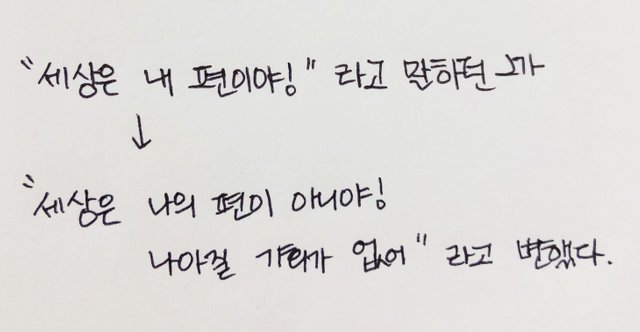 "세상은 내 편이야!" 라고 말하던 그가
↓
"세상은 나의 편이 아니야!
나아질 기미가 없어" 라고 변했다.